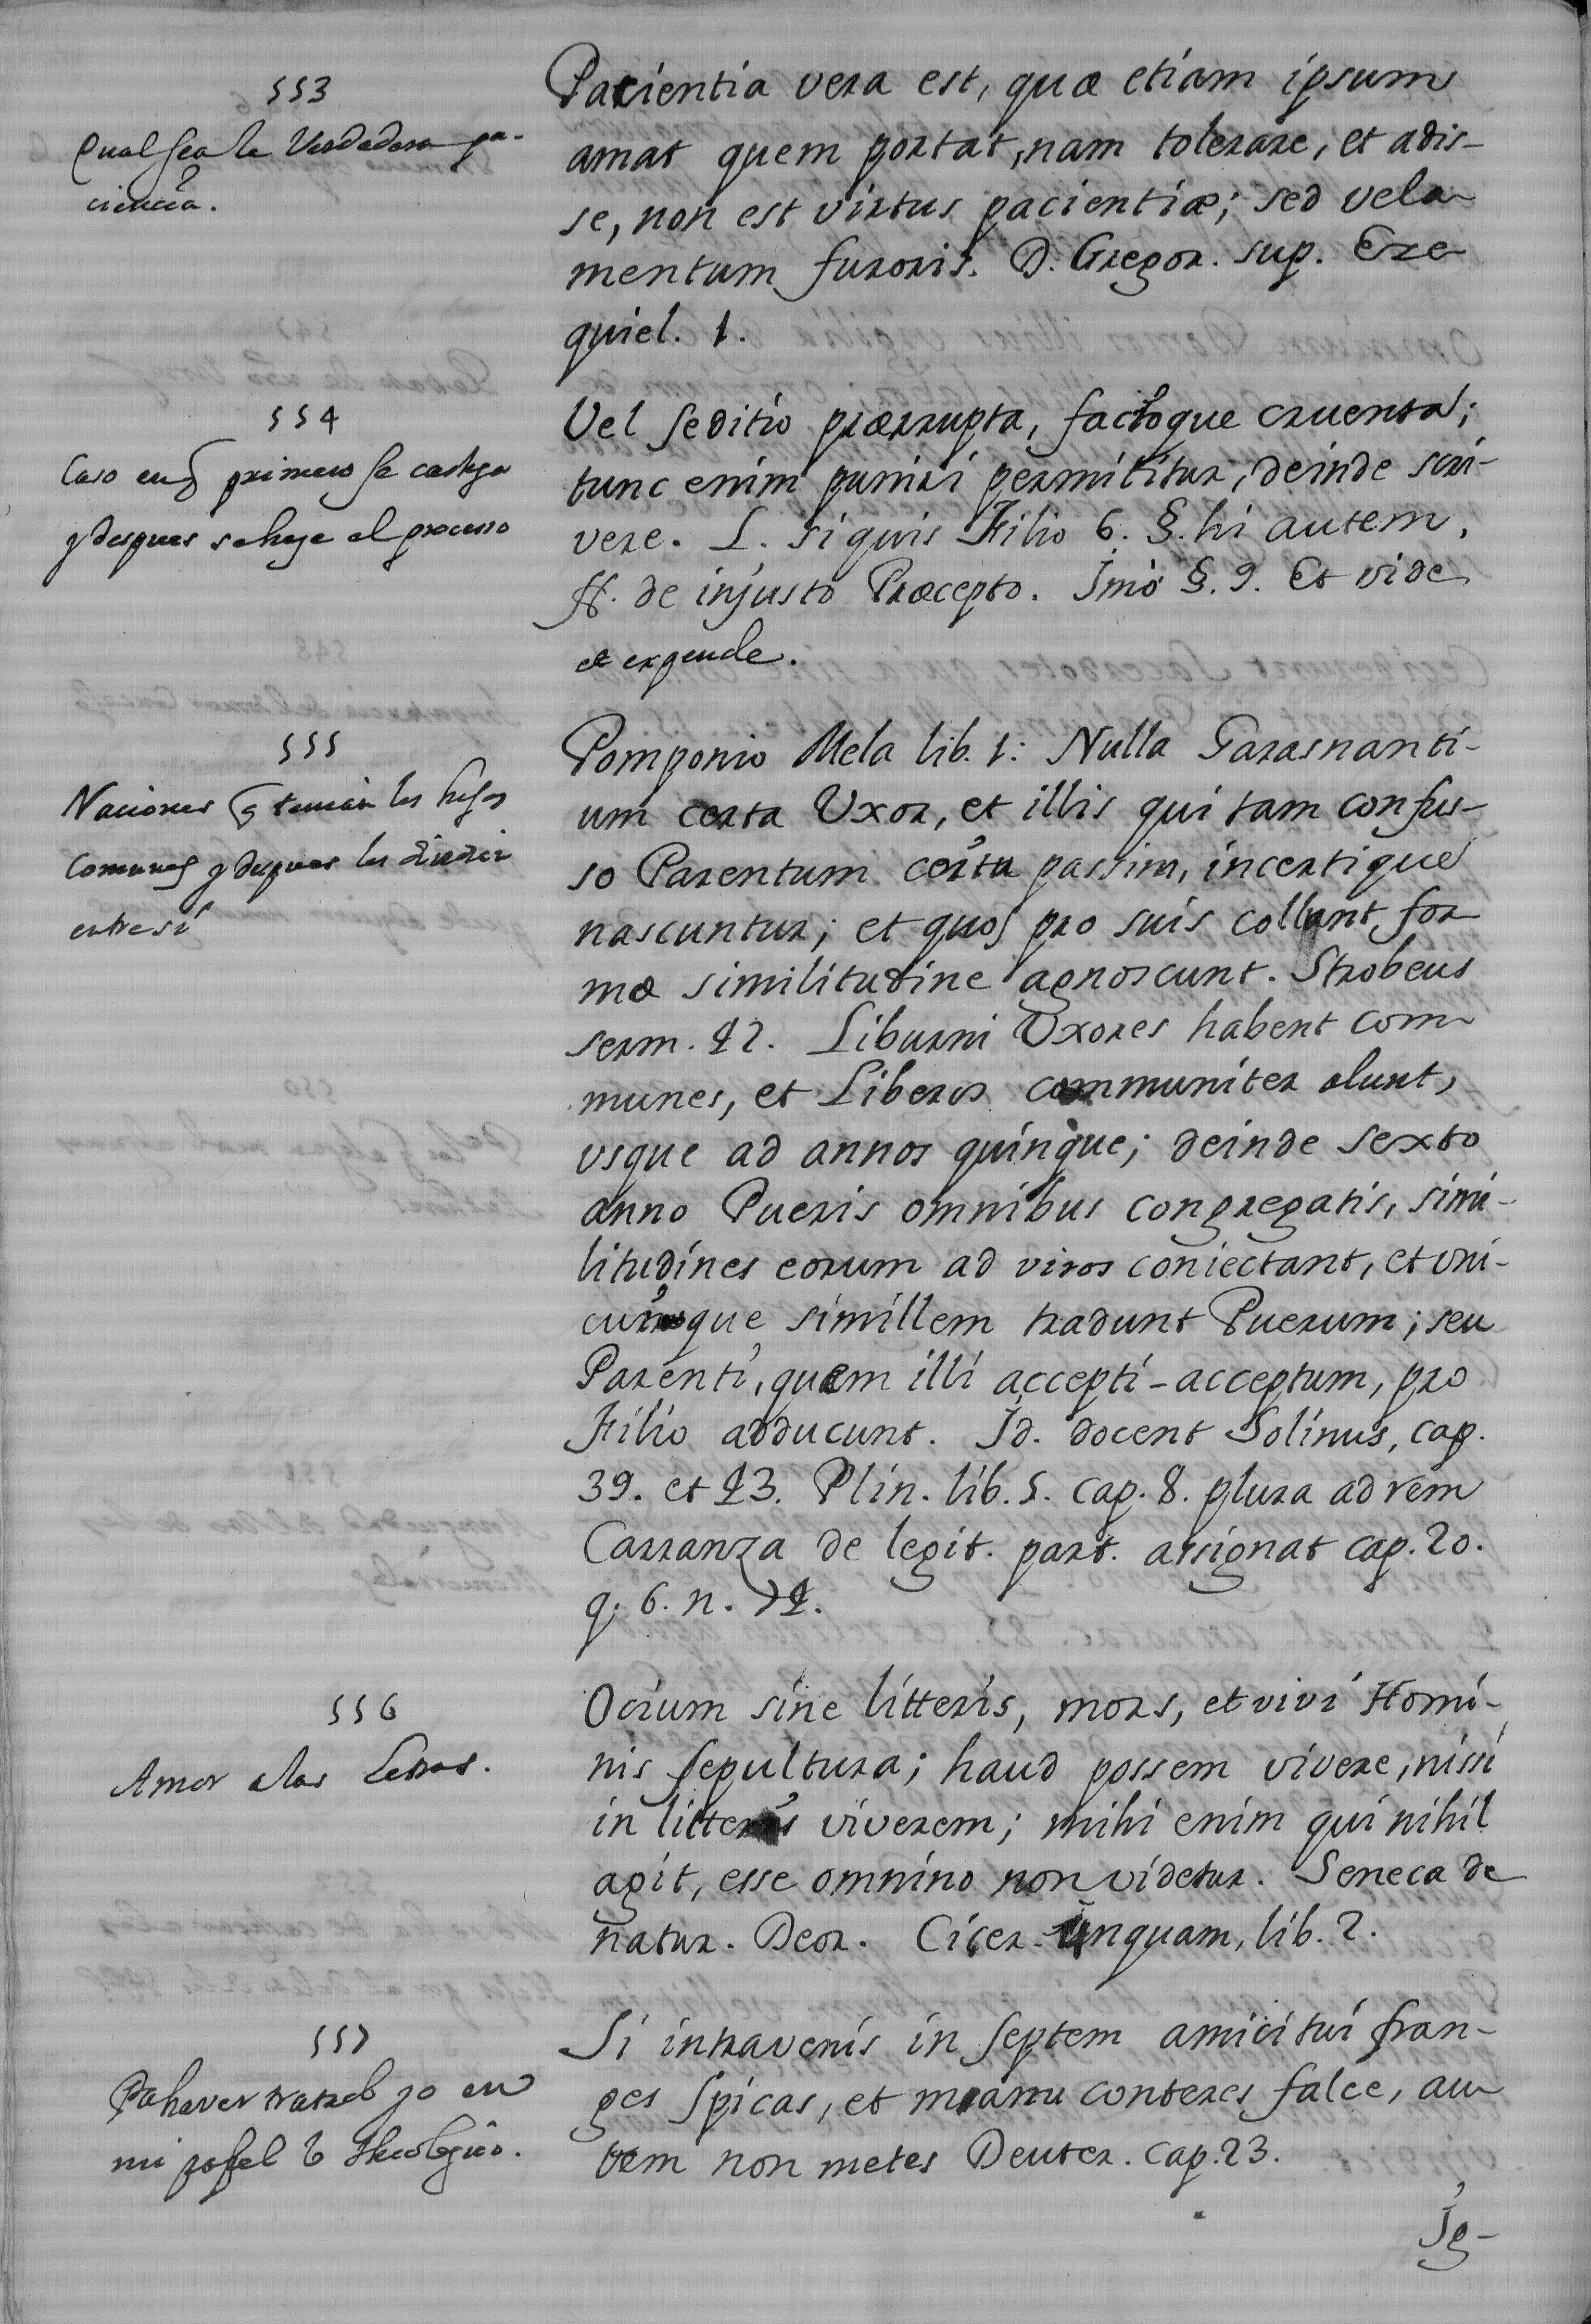 553
Qual sea la Verdadera pa-
ciencia.
Paciencia vera est, quæ etiam ipsum
amat quem portat, nam tolerare, et adis-
se, non est virtus pacientiæ; sed vela
mentum furoris. D. Gregor. sup. Eze
quiel. 1.
554
Caso en q primero se castiga
y despues se hase el processo
Vel seditio prærrupta, factoque cruenta;
tunc enim puniri permititur, deinde scri-
vere. L. siquis Filio 6. §. hi autem,
ff. de injusto Præcepto. Jmò §. 9. Et vide
et expende.
555
Naciones q tenian los hijos
Comunes y despues los
entre si
Pomponio Mela lib. 1: Nulla Garasnanti-
um certa Uxor, et illis qui tam confus-
so Parentum certu passim, incertique
nascuntur; et quos pro suis collant for
mæ similitudine agnoscunt. Strobeus
serm. 42. Liburni Uxores habent com
munes, et Liberos communiter alunt,
usque ad annos quinque; deinde sexto
anno Pueris omnibus congregatis, simi-
litudines eorum ad viros coniectant, et uni-
cuique simillem tradunt Puerum; seu
Parenti, quem illi accepti-acceptum, pro
Filio adducunt. Jd. docent Solinus, cap.
39. et 43. Plin. lib. 5. cap. 8. plura ad rem
Carranza de legit. part. assignat cap. 20.
q. 6. n. 74.
556
Amor a las Letras.
Ocium sine litteris, mors, et vivi Homi-
nis sepultura; haud possem vivere, nisi
in litteris viverem; mihi enim qui nihil
agit, esse omnino non videtur. Seneca de
natur. Deor. Cicer. unquam, lib. 2.
557
yo en
mi papel Theologico.
Si intraveris in septem amici tui fran-
ges spicas, et manu conteres falce, au
tem non metes Deuter. cap. 23.
Jg-